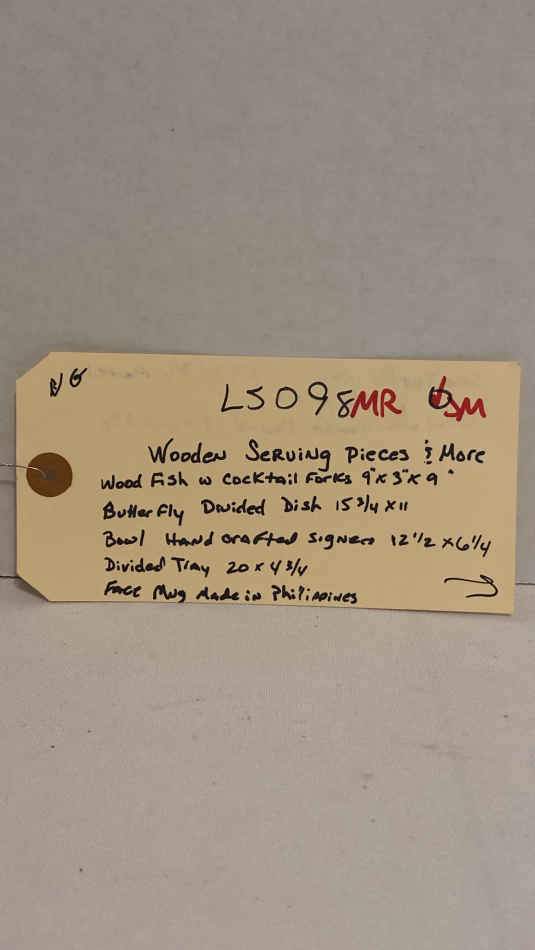 LS098 MR SM
Wooden Serving Pieces & More
Wood Fish w Cocktail Forks 9"x 3"x 9"
Butterfly Divided Dish 15 3/4 x 11
Bowl Hand crafted Signers 12 1/2 x 6 1/4
Divided Tray 20 x 4 3/4
Face Mug Made in Philippines